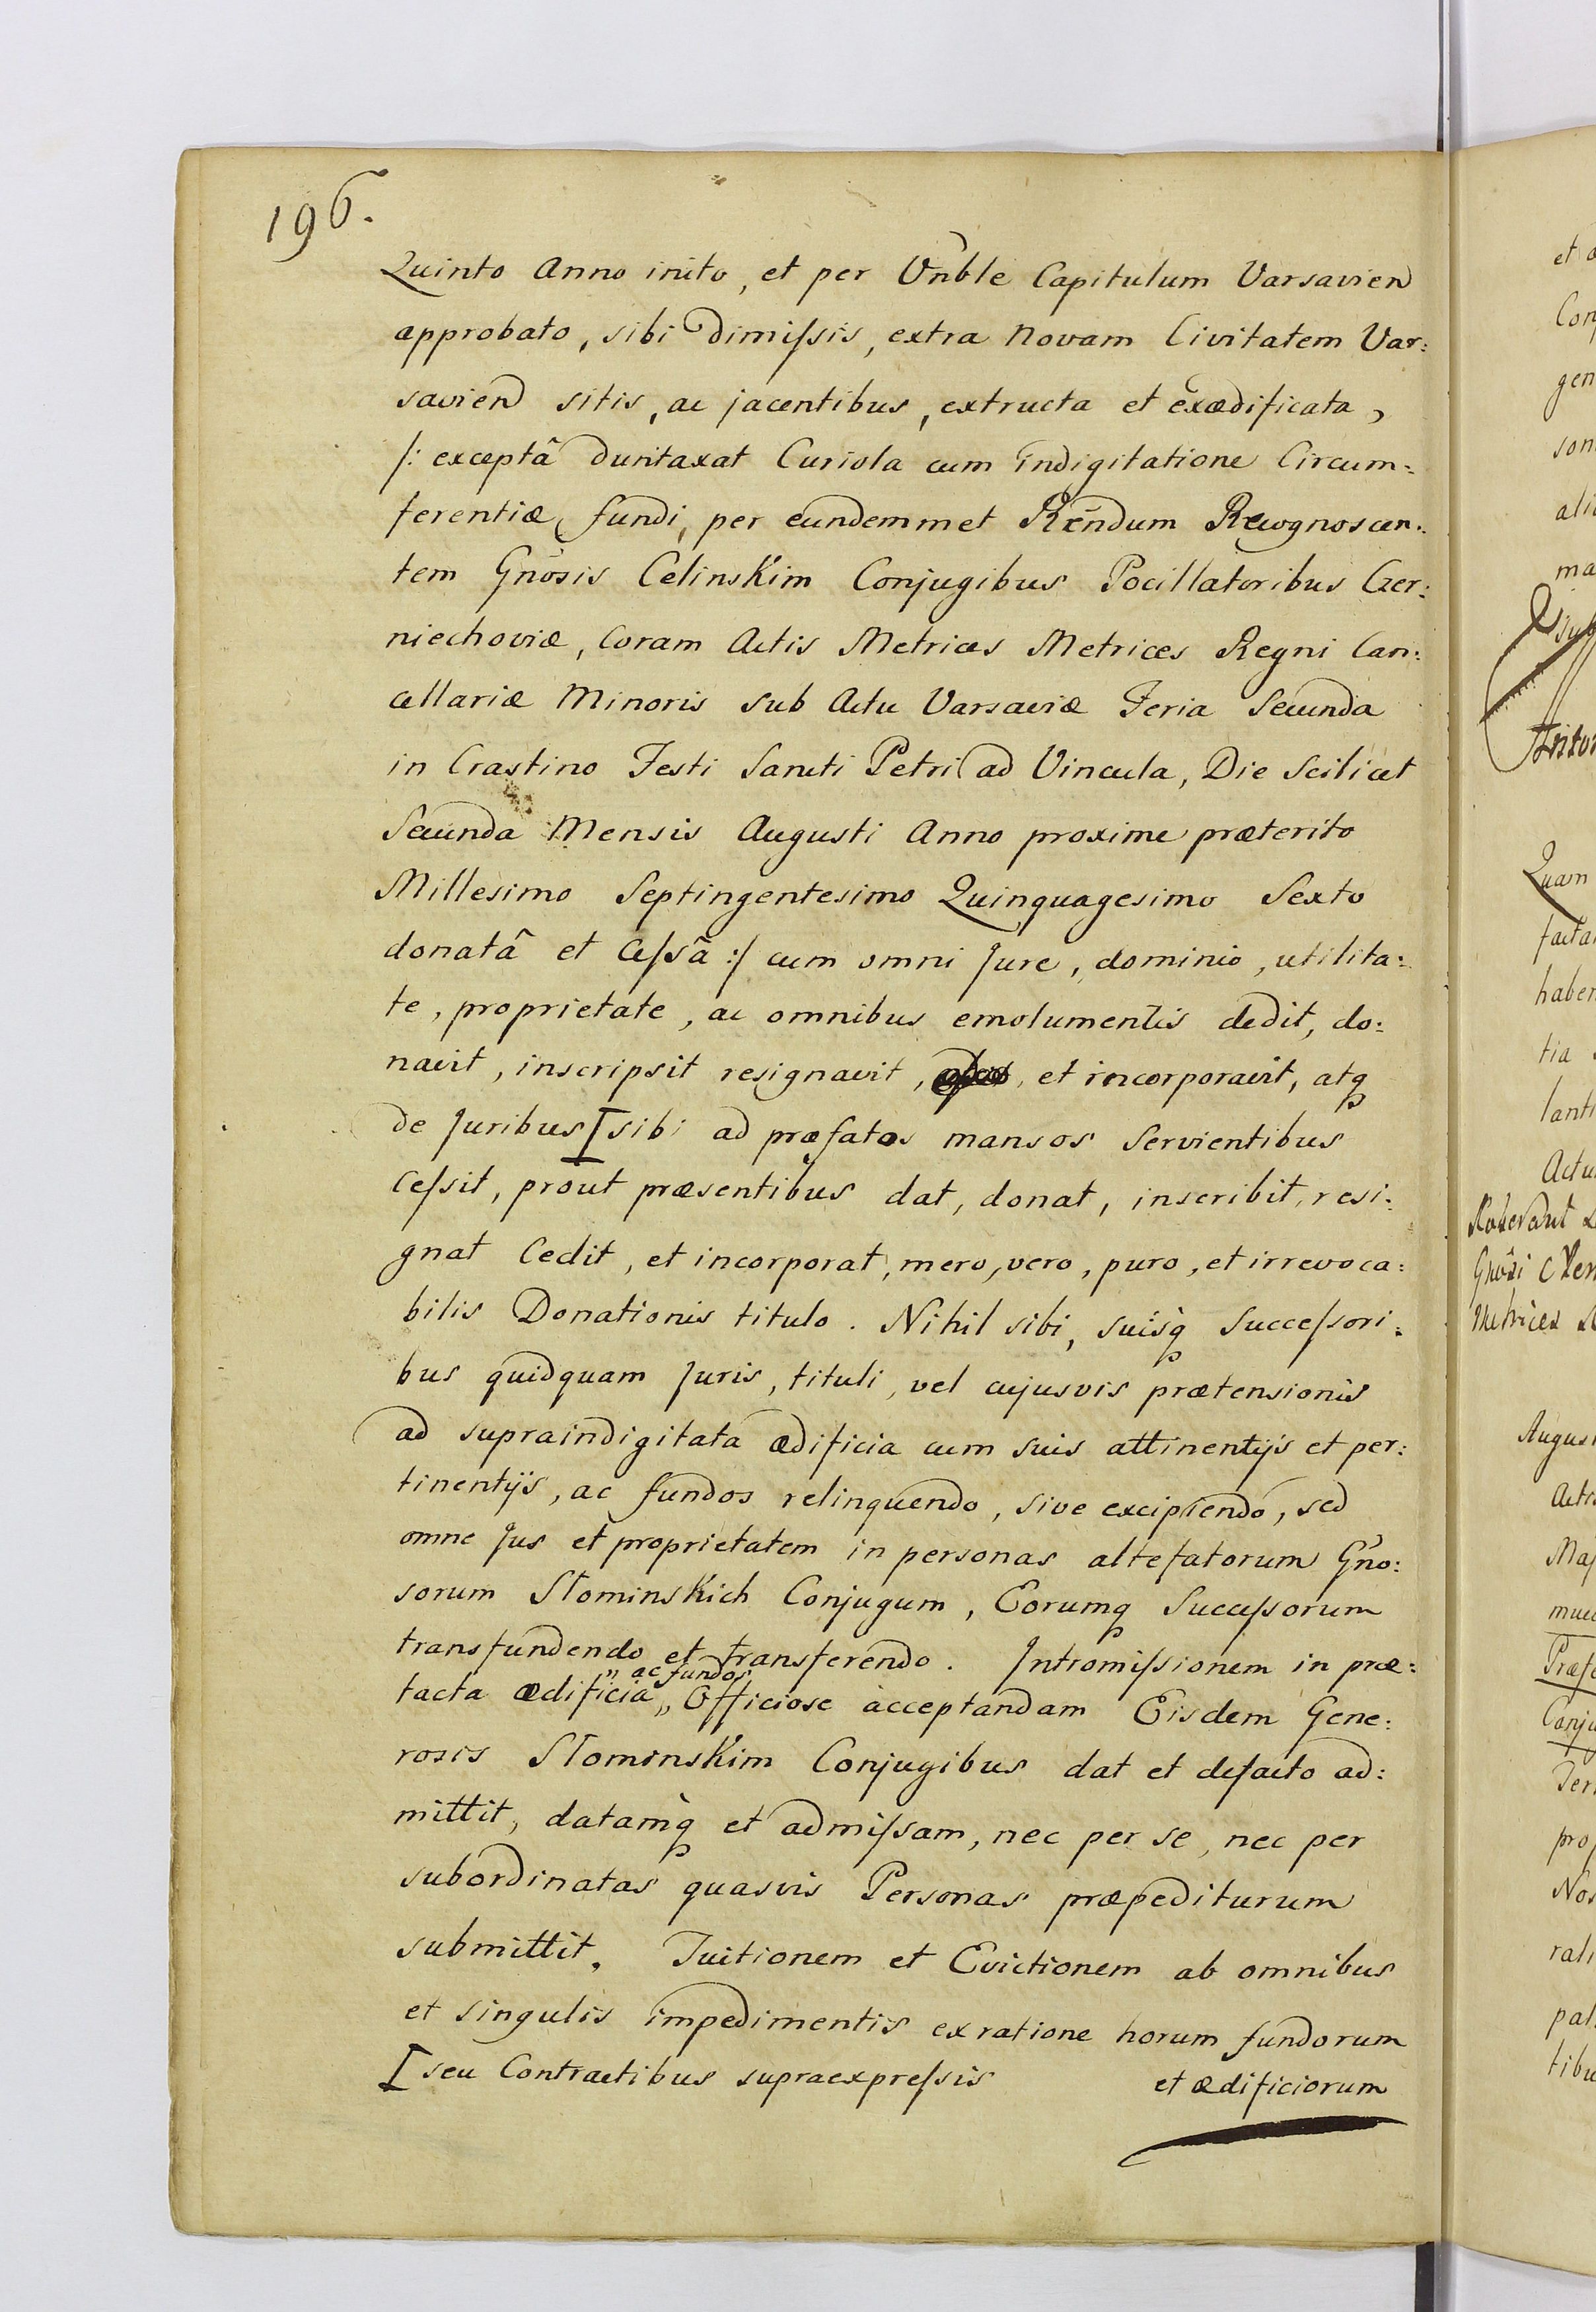 196.
Quinto Anno inito, et per Vnble Capitulum Varsavien
approbato, sibi dimissis, extra Novam Civitatem Var:
savien sitis, ac jacentibus, extructa et exædificata,
/: exceptâ duntaxat Curiola cum indigitatione Circum:
ferentiæ fundi, per eundemmet Rendum Recognoscen:
tem Gnosis Celinskim Conjugibus Pocillatoribus Czer:
niechoviæ, Coram Actis Metrices Metrices Regni Can:
cellariæ Minoris sub Actu Varsaviæ Feria Secunda
in Crastino Festi Sancti Petri ad Vincula, Die Scilicet
Secunda Mensis Augusti Anno proxime præterito
Millesimo Septingentesimo Quinquagesimo Sexto
donatâ et Cessâ :/ cum omni Jure, dominio, utilita:
te, proprietate, ac omnibus emolumentis dedit, do:
navit, inscripsit resignavit, et incorporavit, atq
de Juribus [ sibi ad præfatos mansos Servientibus
Cessit, prout præsentibus dat, donat, inscribit, resi:
gnat Cedit, et incorporat, mero, vero, puro, et irrevoca:
bilis Donationis titulo. Nihil sibi, suisq Successori:
bus quidquam Juris, tituli, vel cujusvis prætensionis
ad supraindigitata ædificia cum suis attinentijs et per:
tinentijs, ac fundos relinquendo, sive excipiendo, sed
omne Jus et proprietatem in personas altefatorum Gno:
sorum Słominskich Conjugum, Eorumq Successorum
transfundendo et transferendo. Intromissionem in præ:
" ac fundos
tacta ædificia " Officiose acceptandam Eisdem Gene:
rosis Słominskim Conjugibus dat et defacto ad:
mittit, datamq et admissam, nec per se, nec per
subordinatas quasvis Personas præpediturum
submittit. Tuitionem et Evictionem ab omnibus
et singulis impedimentis ex ratione horum fundorum
[ seu Contractibus supraexpressis et ædificiorum